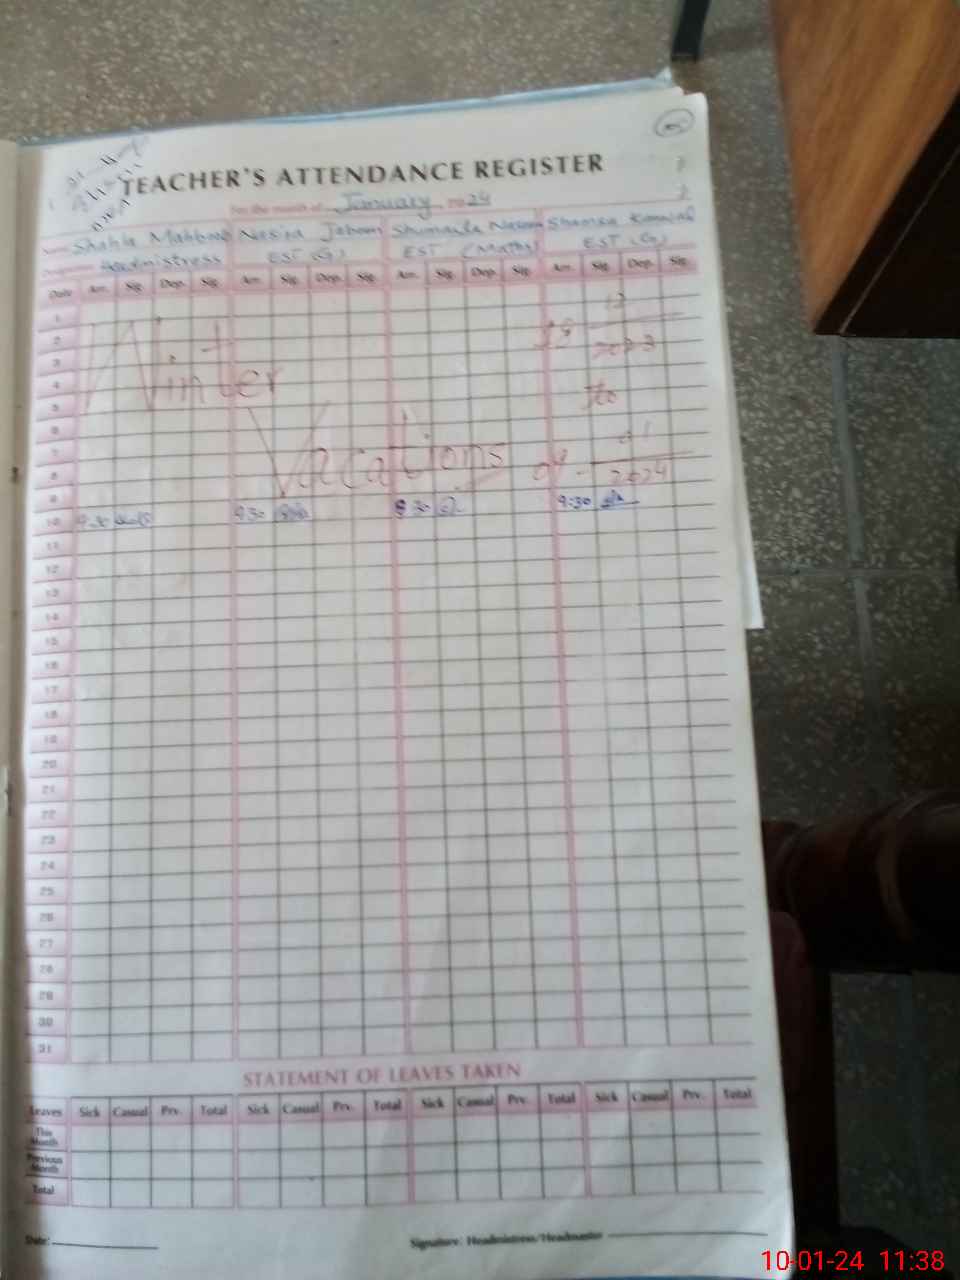 TEACHER'S ATTENDANCE REGISTER
For the month of January 2024
Name Shahla Mahboob Nasira Jabeen Shumaila Shamsa Kanwal
Designation Headmistress EST (G) EST (Maths) EST (G)
Date Arr. Sig. Dep. Sig. Arr. Sig. Dep. Sig. Arr. Sig. Dep. Sig. Arr. Sig. Dep. Sig.
1
2
3
4
5
6
7
8
9
Winter
Vacations
12
2023
to
09 - 01
2024
10 9:30 9:30 9:30 9:30
11
12
13
14
15
16
17
18
19
20
21
22
23
24
25
26
27
28
29
30
31
STATEMENT OF LEAVES TAKEN
Leaves Sick Casual Prv. Total Sick Casual Prv. Total Sick Casual Prv. Total Sick Casual Prv. Total
This Month
Previous Month
Total
Date:
Signature: Headmistress/Headmaster
10-01-24 11:38